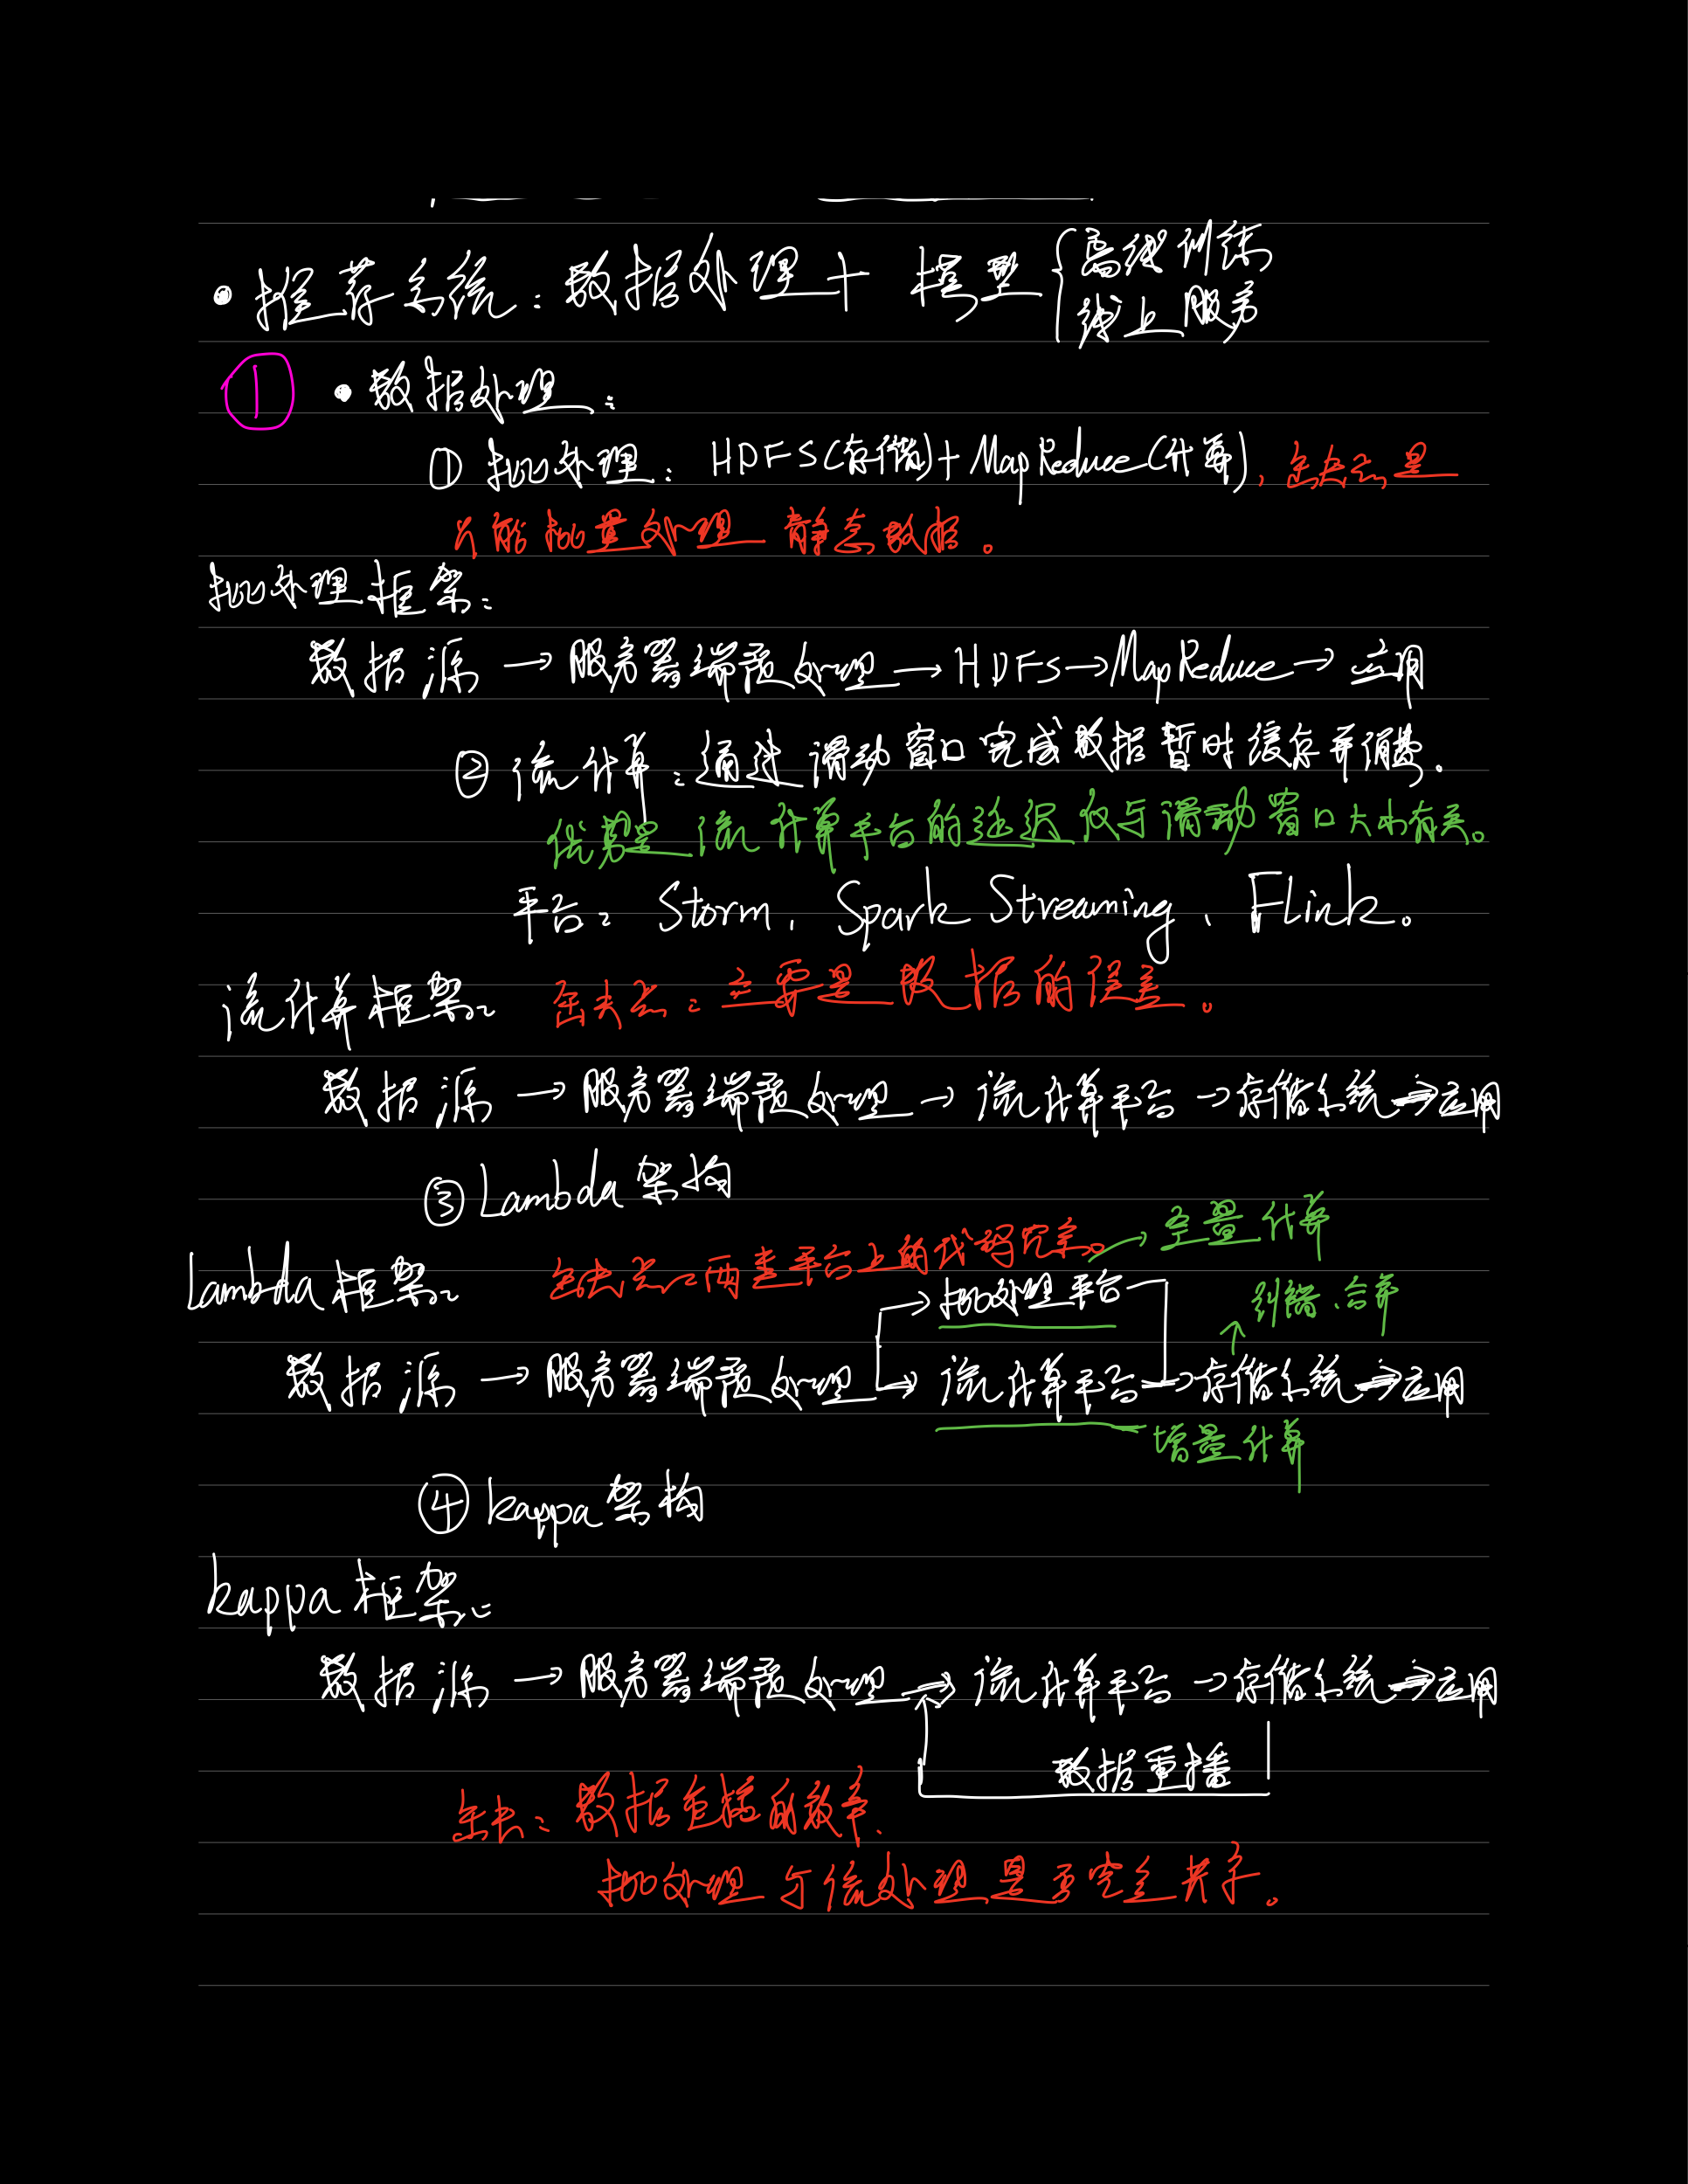 • 推荐系统：数据处理 + 模型 { 离线训练
线上服务
① • 数据处理：
① 批处理：HDFS(存储)+MapReduce(计算)，缺点是
只能批量处理静态数据。
批处理框架：
数据源 → 服务器端预处理 → HDFS → MapReduce → 应用
② 流计算：通过滑动窗口完成数据暂时缓存并消费.
优势是流计算平台的延迟仅与滑动窗口大小有关。
平台：Storm、Spark Streaming、Flink。
流计算框架： 缺点：主要是数据的误差。
数据源 → 服务器端预处理 → 流计算平台 → 存储系统 → 应用
③ Lambda 架构
→ 全量计算
Lambda 框架： 缺点：两套平台上的代码冗余。
→ 批处理平台 纠错、合并
数据源 → 服务器端预处理 → 流计算平台 → 存储系统 → 应用
增量计算
④ kappa 架构
kappa 框架：
数据源 → 服务器端预处理 → 流计算平台 → 存储系统 → 应用
数据重播
缺点：数据重播的效率、
批处理与流处理是否完全共享。